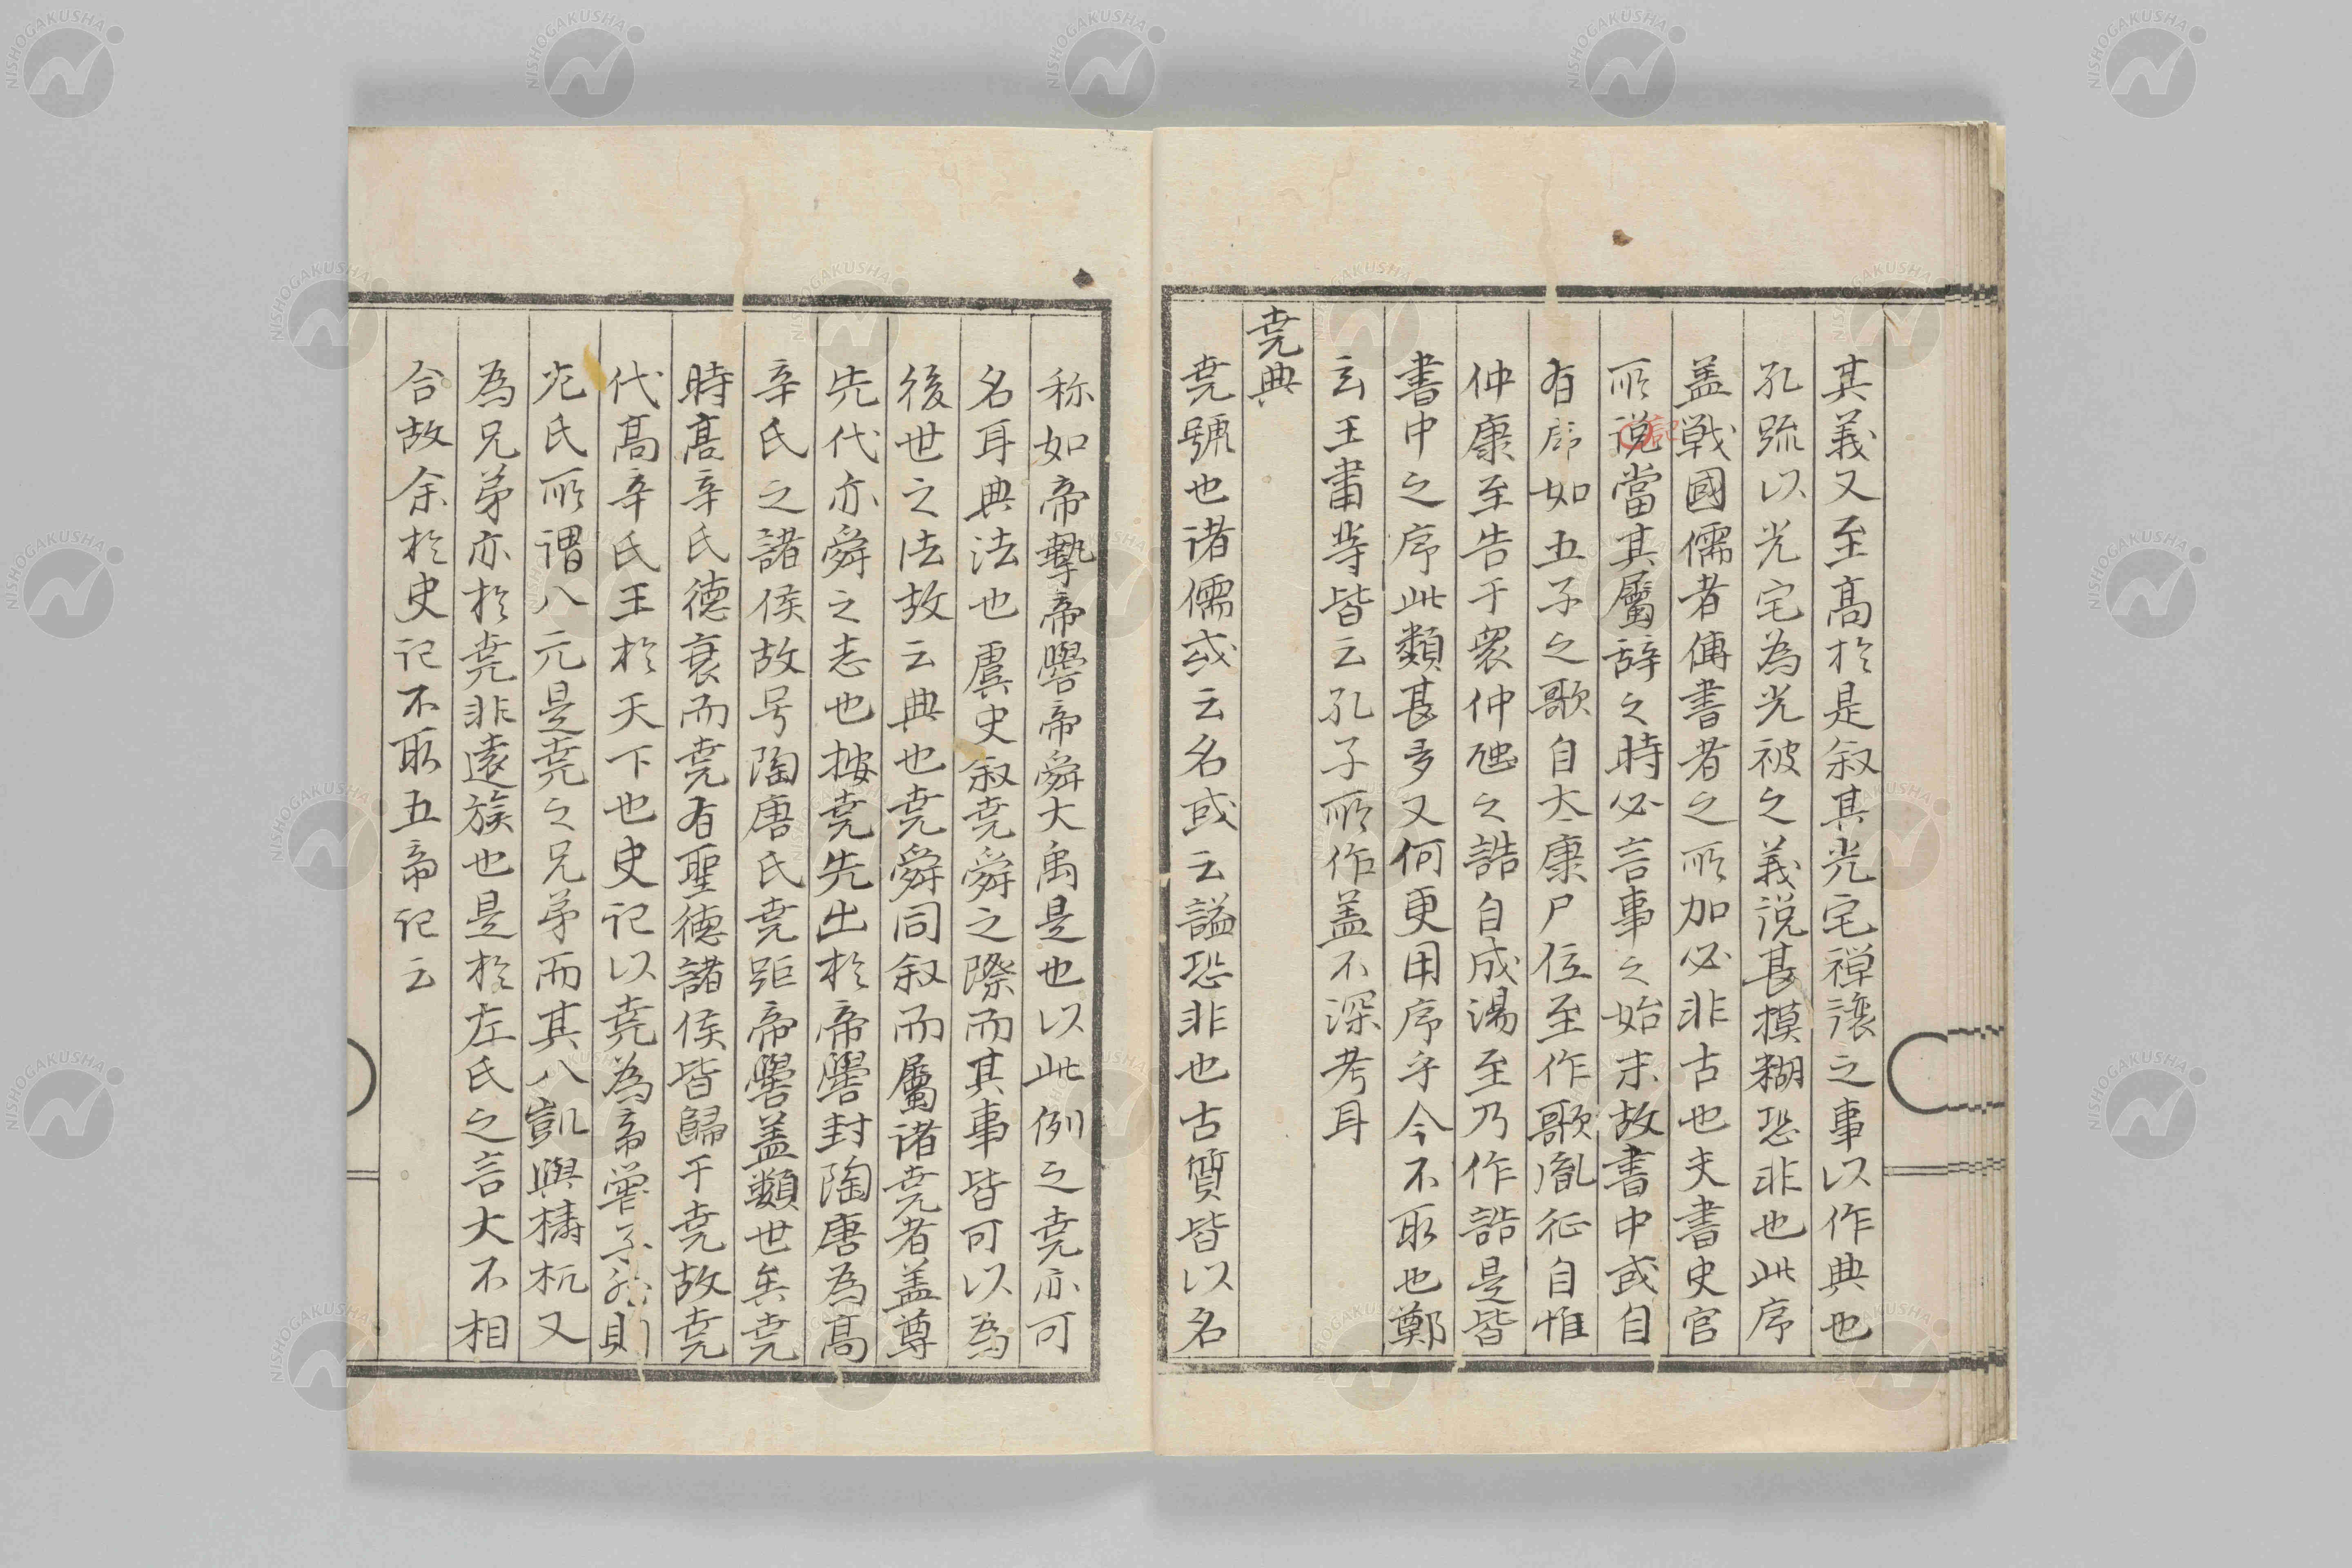 其義又至高於是叙其光宅禅讓之事以作典也
孔疏以光宅為光被之義説甚摸糊恐非也此序
盖戦國儒者傳書者之所加必非古也夫書史官
所説當其屬辞之時必言事之始末故書中或自
記
有序如五子之歌自太康尸位至作歌胤征自惟
仲康至告于衆仲虺之誥自成湯至乃作誥是皆
書中之序此類甚多又何更用序乎今不取也鄭
玄王肅䒭皆云孔子所作盖不深考耳
尭典
尭號也诸儒或云名或云謚恐非也古質皆以名
称如帝摯帝嚳帝舜大禹是也以此例之尭亦可
名耳典法也虞史叙尭舜之際而其事皆可以為
後世之法故云典也尭舜同叙而屬诸尭者盖尊
先代亦舜之志也按尭先出於帝嚳封陶唐為高
辛氏之諸侯故号陶唐氏尭距帝嚳盖數世矣尭
時高辛氏德衰而尭有聖德諸侯皆歸于尭故尭
代高辛氏王於天下也史记以尭為帝嚳子然則
左氏所谓八元是尭之兄弟而其八凱與檮杌又
為兄弟亦於尭非遠族也是於左氏之言大不相
合故余於史记不取五帝记云